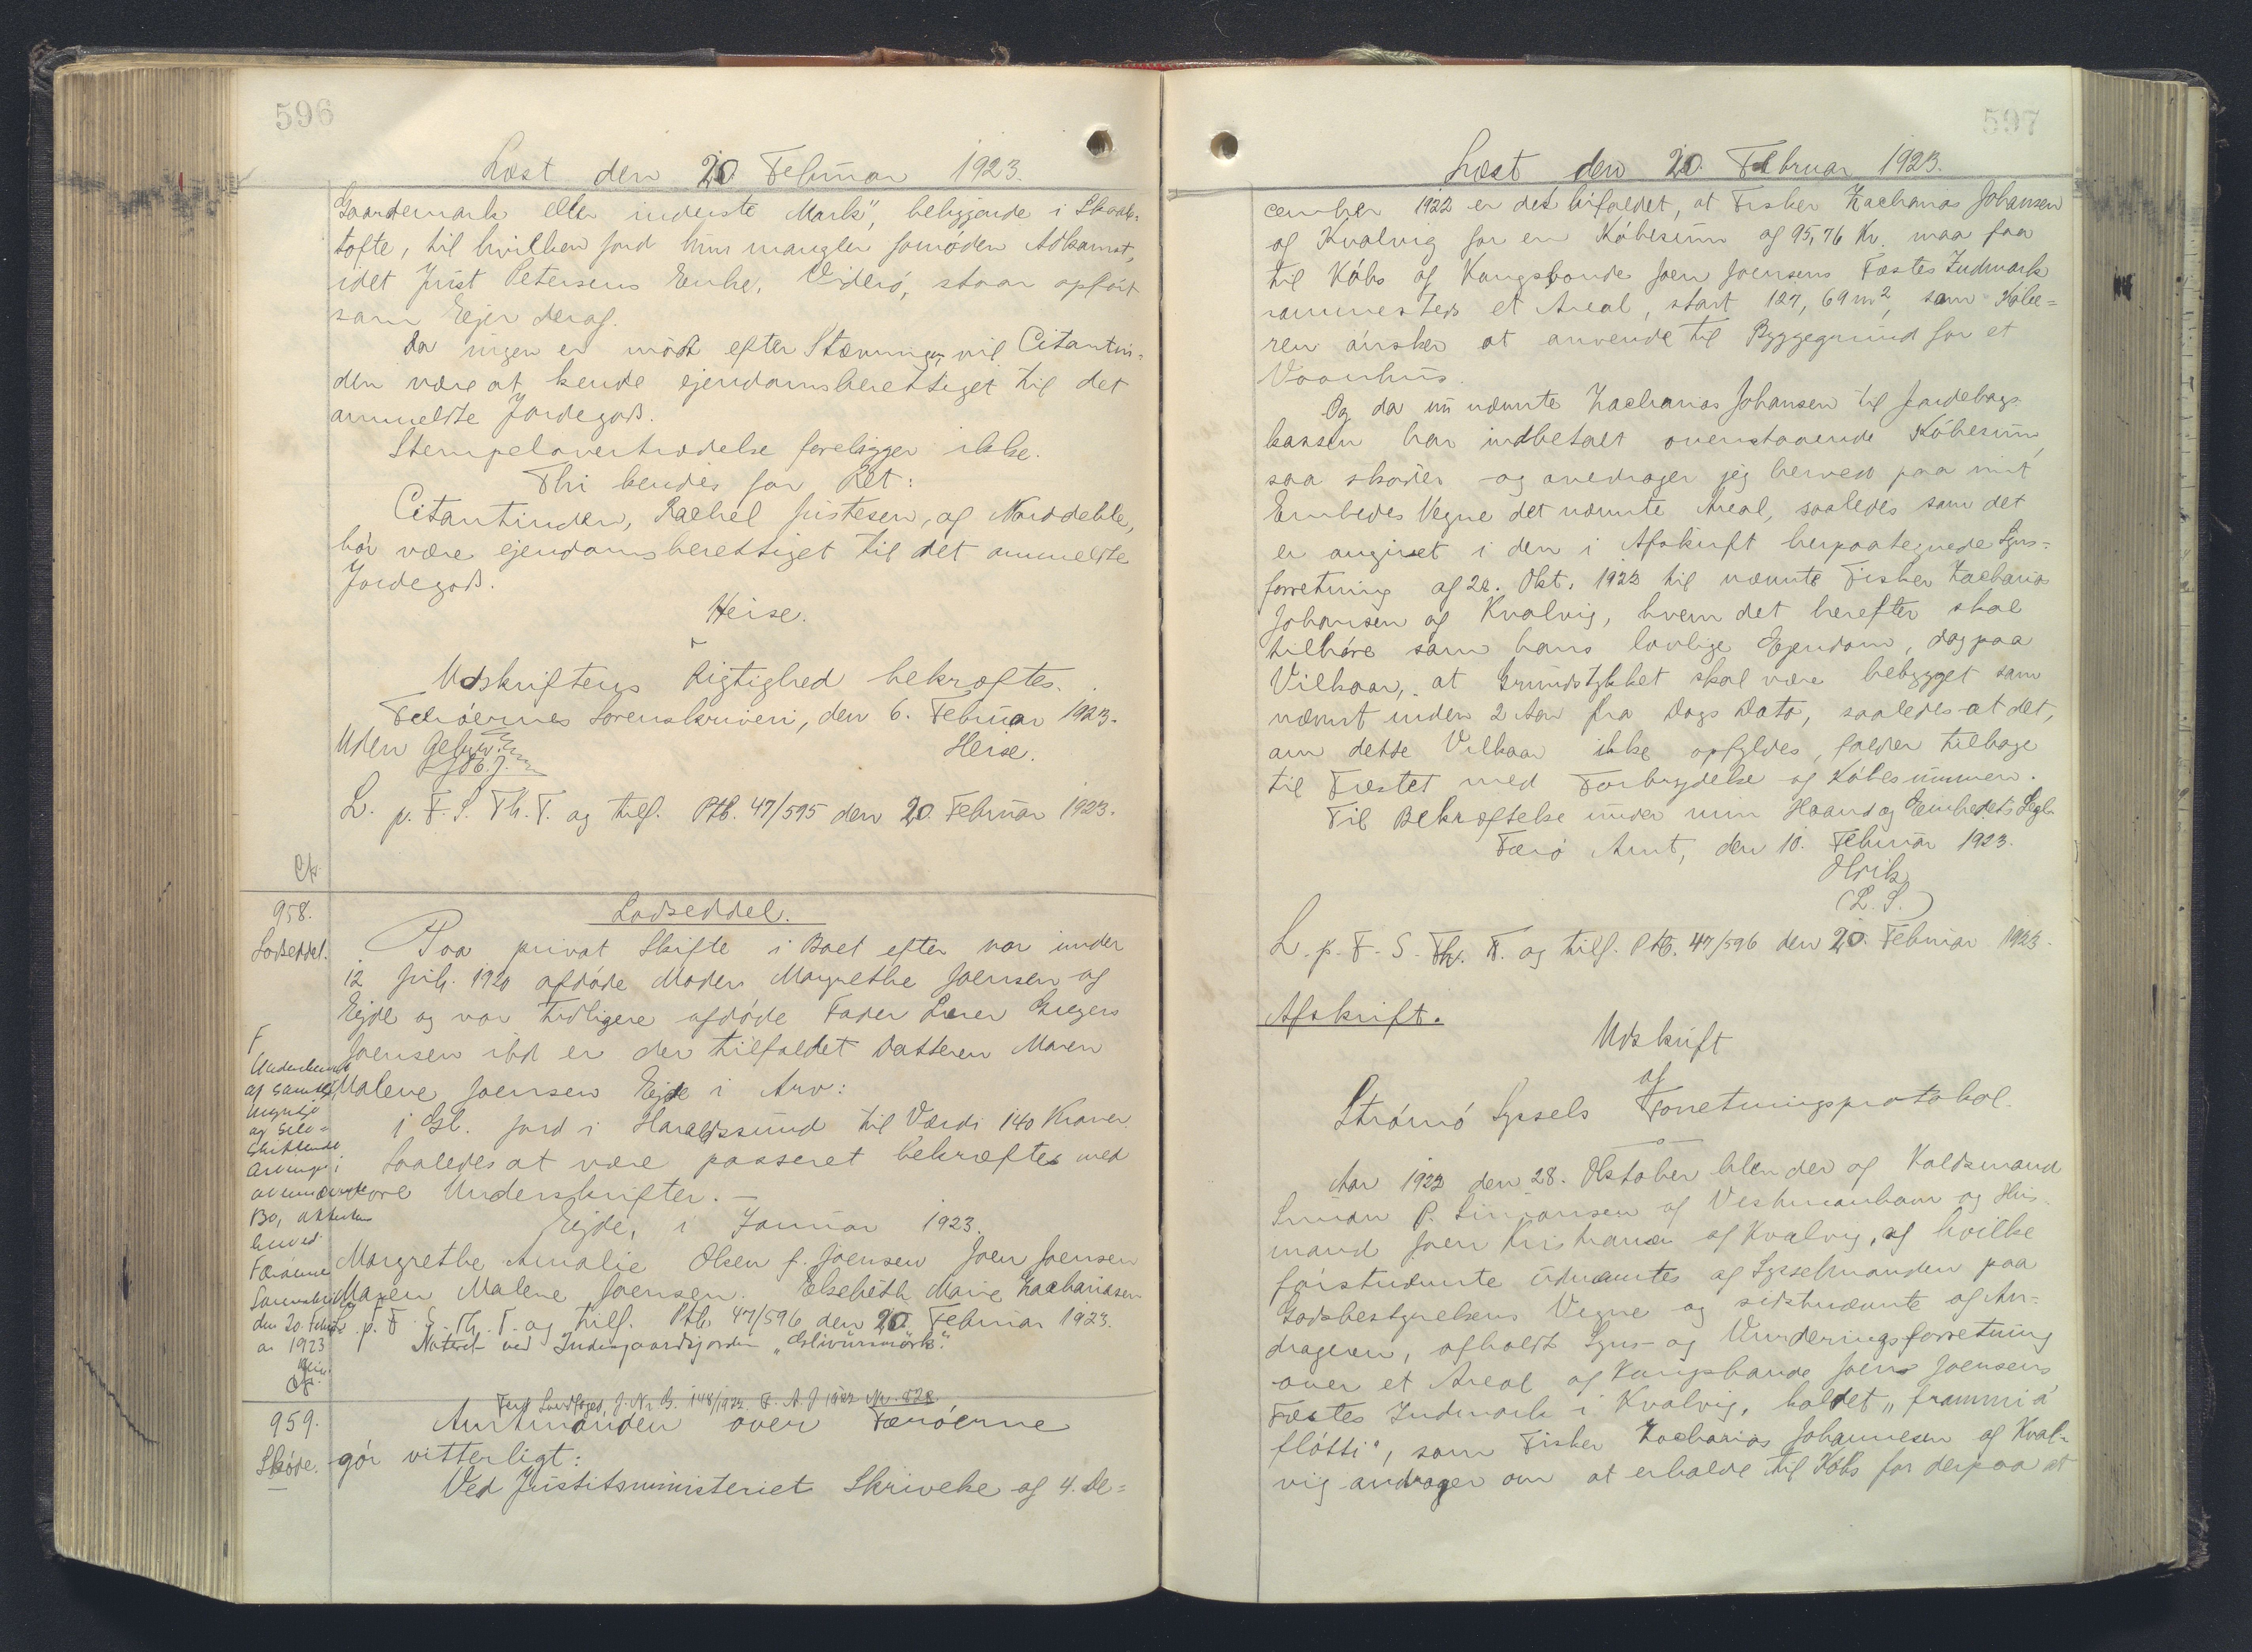 596
Læst den 20. Februar 1923.
Gaardemark eller inderste Mark", beliggende i Skaale-
tofte, til hvilken Jord hun mangler fornøden Adkomst,
idet Just Petersens Enke, Viderø, staar opført
som Ejer deraf.
Da ingen er mødt efter Stævningen vil Citantin-
den være at kende ejendomsberettiget til det
anmeldte Jordegods.
Stempelovertrædelse foreligger ikke.
Thi kendes for Ret:
Citantinden, Rachel Justesen, af Norddeble,
bør være ejendomsberettiget til det anmeldte
Jordegods.
Heise.
Udskriftens Rigtighed bekræftes.
Færøernes Sorenskriveri, den 6. Februar 1923.
Uden Gebyr. Heise.
L. p. F. S. Th. T. og tilf. Ptb. 47/595 den 20. Februar 1923.
958.
Lodseddel.
Lodseddel.
Paa privat Skifte i Boet efter vor under
12 Juli 1920 afdøde Moder Margrethe Joensen af
Ejde og vor tidligere afdøde Fader Lærer Gregers
Joensen ibd er der tilfaldet Datteren Maren
Malene Joensen Ejde i Arv:
1 Gl. Jord i Haraldssund til Værdi 140 Kroner.
Saaledes at være passeret bekræftes med
vore Underskrifter. —
Ejde, i Januar 1923.
Margrethe Amalie Olsen f. Joensen Joen Joensen
Maren Malene Joensen. Elsebeth Marie Zachariasen
L. p. F. S. Th. T. og tilf. Ptb. 47/596 den 20. Februar 1923.
Noteret ved Indegaardsjorden
F
Underskrevet
af samtlige
myndige
og selv-
skiftende
Arvinger i
ovennævnte
Bo, attesteres
herved
Færøernes
Sorenskriveri
den 20. Febru-
ar 1923
959.
Skøde.
J. Nr. B. 148/1922 F. A. J 1922 Nr. 828.
Amtmanden over Færøerne
gør vitterligt:
Ved Justitsministeriet Skrivelse af 4. De-
597
Læst den 20. Februar 1923.
cember 1922 er det bifaldet, at Fisker Zacharias Johansen
af Kvalvig for en Købesum af 95,76 Kr. maa faa
til Købs af Kongsbonde Joen Joensens Fæstes Indmark
sammesteds et Areal, stort 127,69 m², som Købe-
ren ønsker at anvende til Byggegrund for et
Vaanhus.
Og da nu nævnte Zacharias Johansen til Jordebogs-
kassen har indbetalt ovenstaaende Købesum,
saa skøder og overdrager jeg herved paa mit
Embedes Vegne det nævnte Areal, saaledes som det
er angivet i den i Afskrift herpaategnede Syns-
forretning af 28. Okt. 1922 til nævnte Fisker Zacharias
Johansen af Kvalvig, hvem det herefter skal
tilhøre som hans lovlige Ejendom, dog paa
Vilkaar, at Grundstykket skal være bebygget som
nævnt inden 2 Aar fra Dags Dato, saaledes at det,
om dette Vilkaar ikke opfyldes, falder tilbage
til Fæstet med Forbrydelse af Købesummen.
Til Bekræftelse under min Haand og Embedets Segl.
Færø Amt, den 10. Februar 1923.
Olrik
(L. S.)
L. p. F. S. Th. T. og tilf. Ptb. 47/596 den 20. Februar 1923.
Afskrift.
Udskrift
af
Strømø Syssels Forretningsprotokol.
Aar 1922 den 28. Oktober blev der af Valdsmand
Simon P. Simonsen af Vestmanhavn og Hus-
mand Joen Kristiansen af Kvalvig, af hvilke
førstnævnte udnævntes af Sysselmanden paa
Godsbestyrelsens Vegne og sidstnævnte af An-
drageren, afholdt Syns- og Vurderingsforretning
over et Areal af Kongsbonde Joens Joensens
Fæstes Indmark i Kvalvig, kaldet „frammi á
fløtti", som Fisker Zacharias Johannesen af Kval-
vig andrager om at erholde til Købs for derpaa at